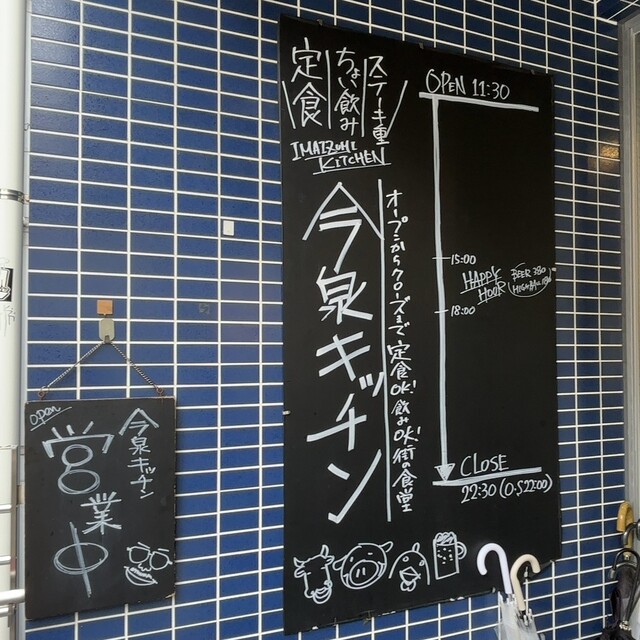 ステーキ重
ちょい飲み
定食
IMAIZUMI
KITCHEN
オープンからクローズまで 定食OK! 飲みOK! 街の食堂
今泉キッチン
OPEN 11:30
15:00
HAPPY
HOUR
BEER 380
18:00
CLOSE
22:30 (O.S 22:00)
open
今泉キッチン
営業中